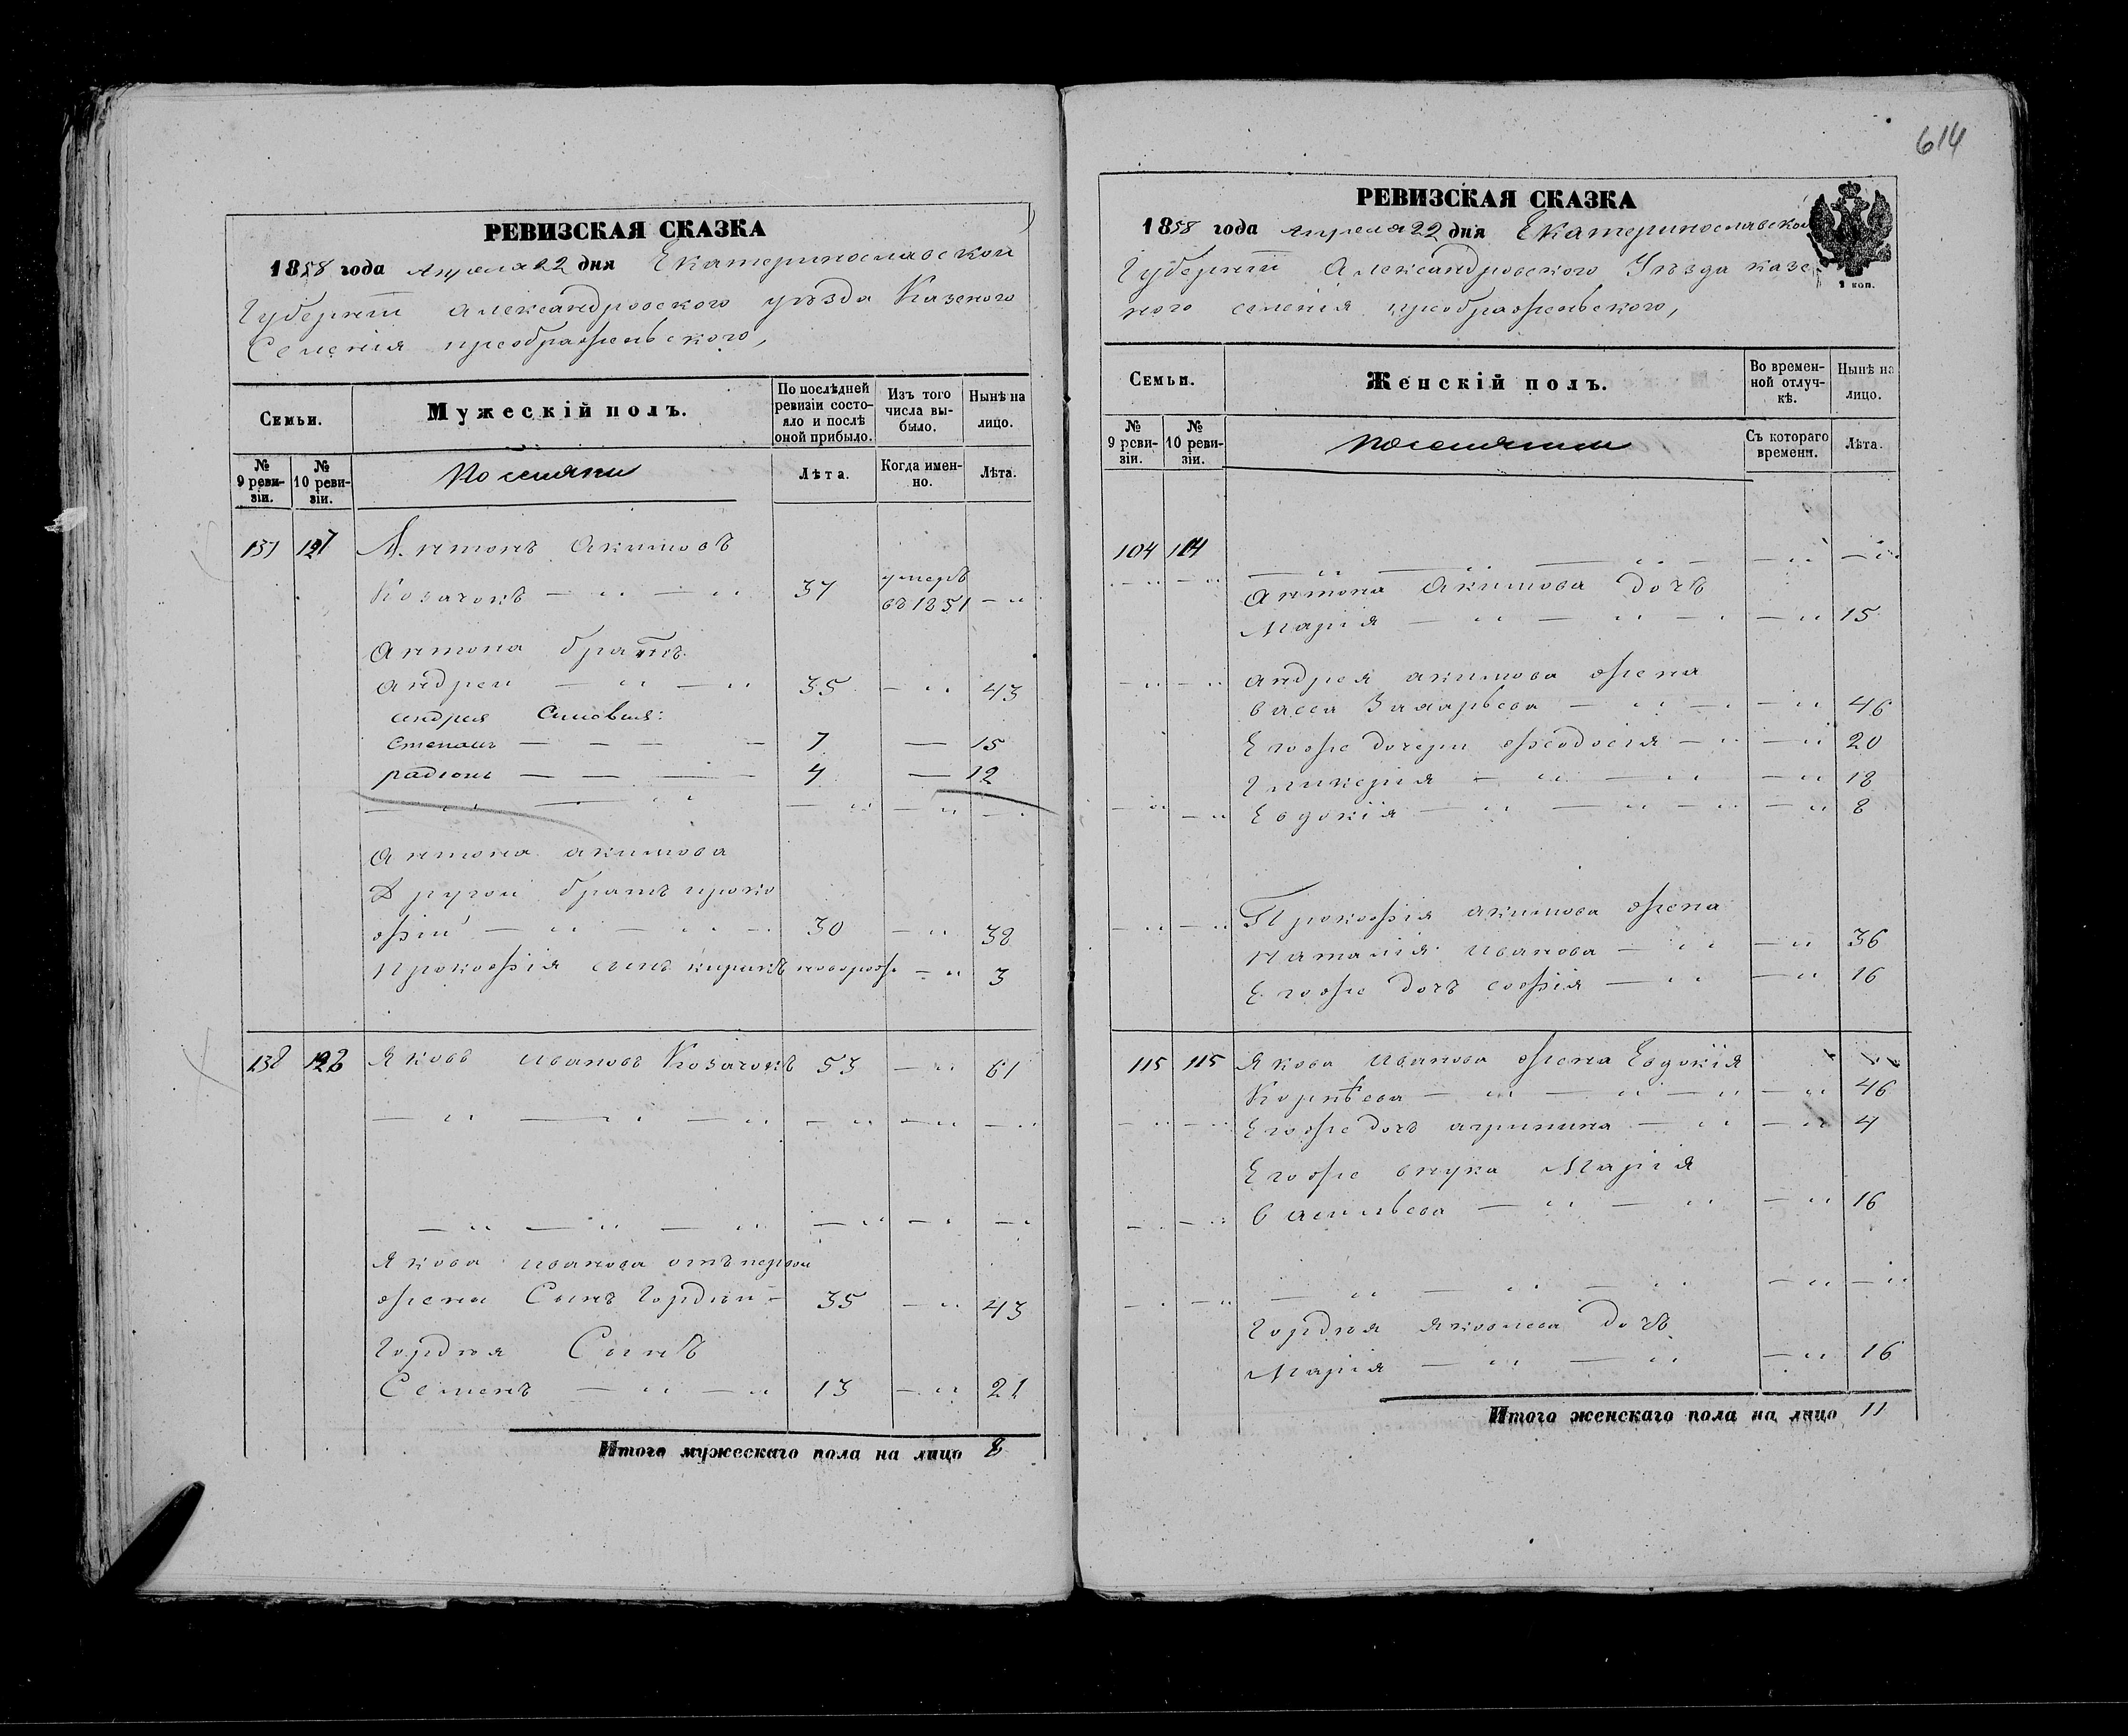 614
РЕВИЗСКАЯ СКАЗКА
1858 года Апреля 22 дня Екатеринославской
Губернїи Александровского уѣзда Казеного
Селенія преображеньского,
Семьи.
Мужескій полъ.
По послѣдней ревизіи состояло и послѣ оной прибыло.
Изъ того числа выбыло.
Нынѣ на лицо.
№ 9 ревизіи.
№ 10 ревизіи.
Поселяни
Лѣта.
Когда именно.
Лѣта.
137 127 Антонъ Акимовъ
Козачокъ — " — " 37 умеръ въ 1851 — "
Антона братъ
андреи — " — " 35 — " 43
андрея Синовья:
степанъ — — — — 7 — 15
радіонъ — — — — 4 — 12
— " — " — " — " — "
Антона акимова
Другои братъ проко
фій — " — " — 30 — " 38
Прокофія сынъ кирикъ новорож — " 3
138 128 Яковъ ивановъ Козачокъ 53 — " 61
— " — " — " — " — " — "
— " — " — " — " — " — "
Якова иванова отъ первои
жены Сынъ Гордѣй — 35 — " 43
Гордѣя Сынъ
Семенъ — " — " 13 — " 21
Итого мужескаго пола на лицо 8
РЕВИЗСКАЯ СКАЗКА
1858 года Апреля 22 дня Екатеринославской
Губернїи Александровского Уѣзда казе
ного селенія преображеньского,
2 коп.
Семьи.
Женскій полъ.
Во временной отлучкѣ.
Нынѣ на лицо.
№ 9 ревизіи.
№ 10 ревизіи.
Поселянки
Съ котораго времени.
Лѣта.
104 104 — " — " — " — " — "
— " — " Антона Акимова дочъ
Марія — " — " — " — " 15
— " — " андрея акимова жена
васса Захарьева — " — " — " 46
Егоже дочери феодосія — " — " 20
Гликерія — " — " — " 18
— " — " Евдокія — " — " — " — " 8
— " — " Прокофія акимова жена
Наталія иванова — " — " 36
Егоже дочъ софія — " — " 16
115 115 Якова иванова жена Евдокія
Корнѣева — " — " — " — " 46
— " — " Егоже дочъ агрипина — " — " 4
Егоже внука Марія
— " — " васильева — " — " — " 16
— " — " — " — " — " — " — "
Гордѣя яковлева дочъ
Марія — " — " — " 16
Итого женскаго пола на лицо 11